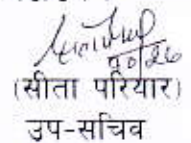 (सीता परियार)
उप-सचिव